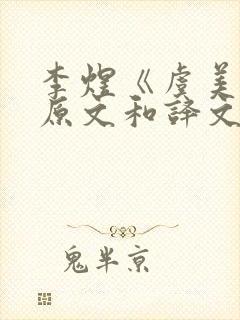 李煜《虞美
原文和译文
鬼半京